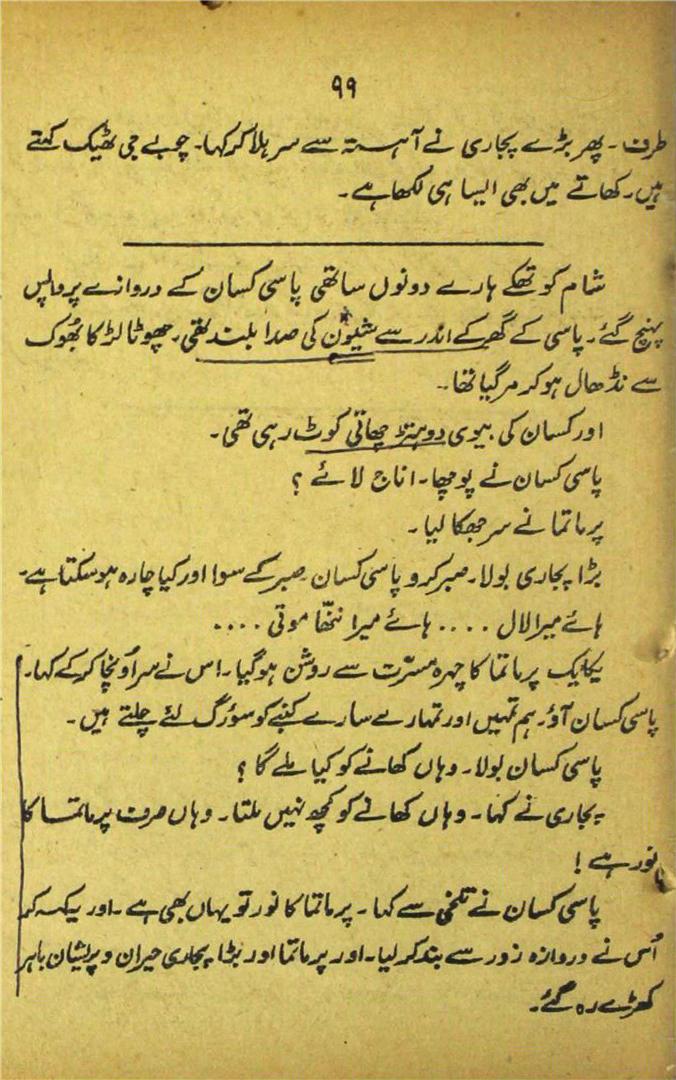 ۹۹
طرف ۔ پھر بڑے پجاری نے آہستہ سے سر ہلا کر کہا۔ چوبے جی ٹھیک کہتے
ہیں۔ کھاتے میں بھی ایسا ہی لکھا ہے ۔
شام کو تھکے ہارے دونوں ساتھی پاسی کسان کے دروازے پر واپس
پہنچ گئے ۔ پاسی کے گھر کے اندر سے شیون کی صدا بلند تھی ۔ چھوٹا لڑکا بھُوک
سے نڈھال ہو کر مر گیا تھا ۔
اور کسان کی بیوی دوہتڑ چھاتی کوٹ رہی تھی ۔
پاسی کسان نے پوچھا ۔ اناج لائے ؟
پرماتما نے سر جھکا لیا ۔
بڑا پجاری بولا۔ صبر کرو پاسی کسان صبر کے سوا اور کیا چارہ ہو سکتا ہے ۔
ہائے میرا لال .... ہائے میرا ننھّا موتی ....
یکایک پرماتما کا چہرہ مسرّت سے روشن ہو گیا ۔ اس نے سر اُونچا کر کے کہا۔
پاسی کسان آؤ۔ ہم تمہیں اور تمہارے سارے کنبے کو سؤرگ لئے چلتے ہیں ۔
پاسی کسان بولا ۔ وہاں کھانے کو کیا ملے گا ؟
پجاری نے کہا ۔ وہاں کھانے کو کچھ نہیں ملتا ۔ وہاں صرف پرماتما کا
نور ہے !
پاسی کسان نے تلخی سے کہا ۔ پرماتما کا نور تو یہاں بھی ہے ۔ اور یہ کہہ کر
اُس نے دروازہ زور سے بند کر لیا ۔ اور پرماتما اور بڑا پجاری حیران و پریشان باہر
کھڑے رہ گئے ۔